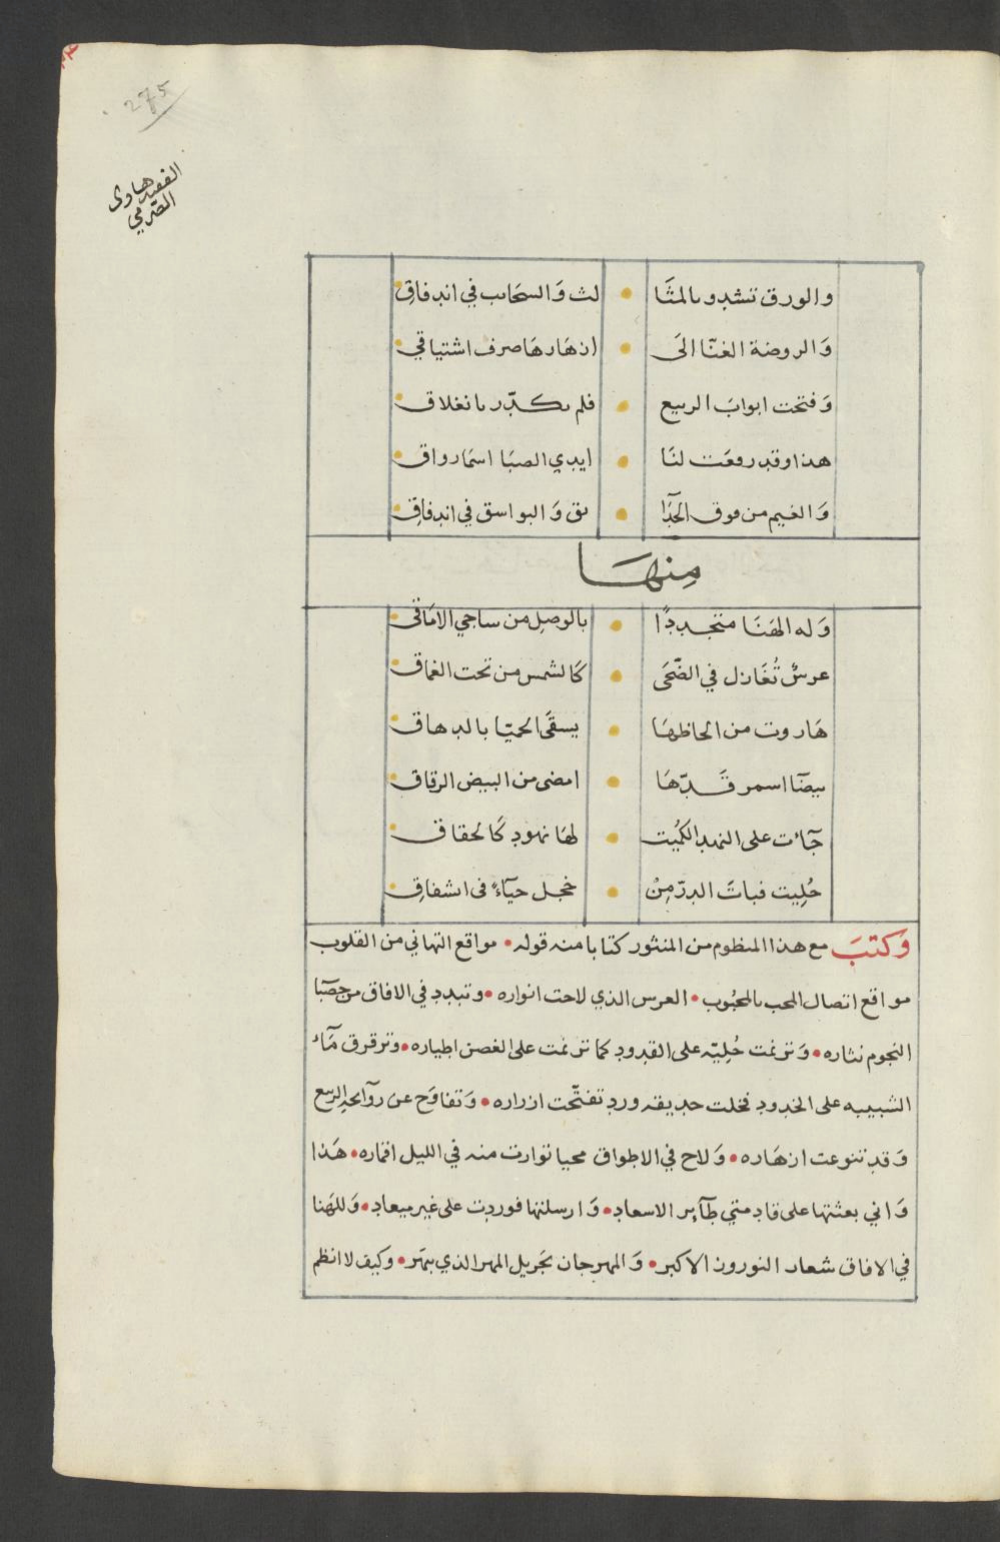 275
الفقيه هادى
الصّرمي
والورق تشدو بالمثَا • لث وَالسحَاب في اندفاقِ
وَالروضة الغنّا الَى • ازهَارهَا صرف اشتياقي
وَفتحت ابوابَ الربيع • فلم يكدّر بانغلاق
هذا وقد رفعَت لنَا • ايدي الصبَا اسمَار واق
وَالغيم من فوق الحَدآ • ئق وَالبواسق في اندفاقِ
مِنهَا
وَله الهَنَا متجددًا • بالوصلِ من ساجي الامَاقى
عرسٌ تُغَازل في الضّحَى • كَالشمس من تحت الغمَاق
هَاروت من الحاظهَا • يسقَى الحميّا بالدهاق
بيضَآ اسمر قَدّهَا • امضى من البيض الرقاق
جَآءت على النهد الكُميت • لهَا نهود كَالحقاق
حُلِيت فباتَ البدرّ مِنْ • خجل حيَآءً فى انشفاقِ
وَكتبَ مع هذا المنظوم من المنثور كتابا منه قوله • مواقع التهاني من القلوب
مواقع اتصال المحب بالمحبُوب • العرس الذي لاحت انواره • وتبدد في الافاق من حصبَا
النجوم نثاره • وَترنمت حُلِيّه على القدود كما ترنمت على الغصن اطياره • وترقرق مَآء
الشبيبه على الخدود فخلت حديقه وردٍ تفتّحت ازراره • وَتفاوَح عن روآيحه الربيع
وَقد تنوعت ازهَاره • وَلاح في الاطواق محيا توارت منه في الليل اقماره • هَذا
وَاني بعثتها على قادمتي طَآير الاسعاد • وَارسلتها فوردت على غير ميعاد • وَللهَنا
في الافاق شعار النوروز الاكبر • وَالمهرجان بَجريل المهر الذي بهَر • وكيف لا انظم